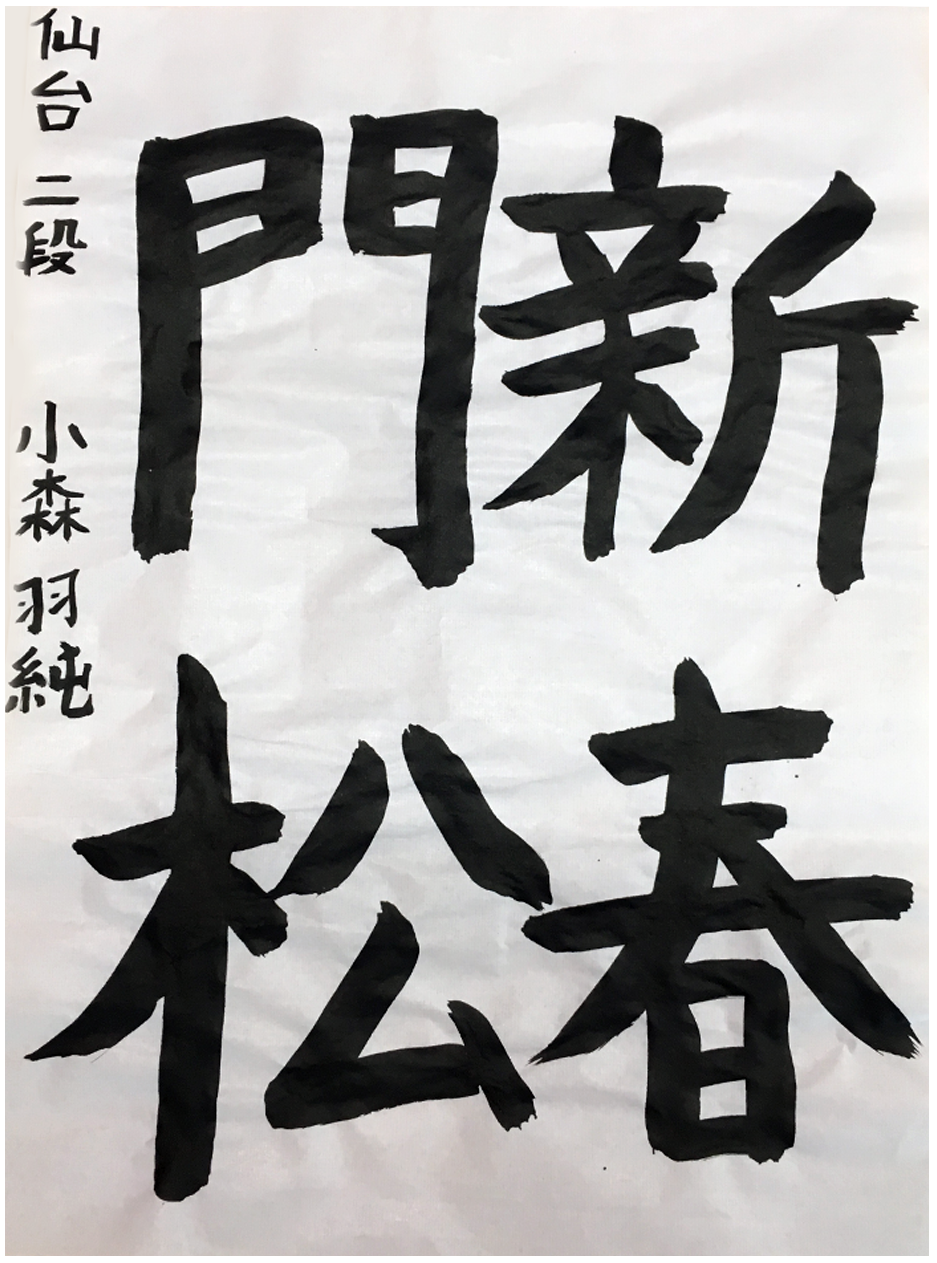 新春
門松
仙台 二段 小森 羽純